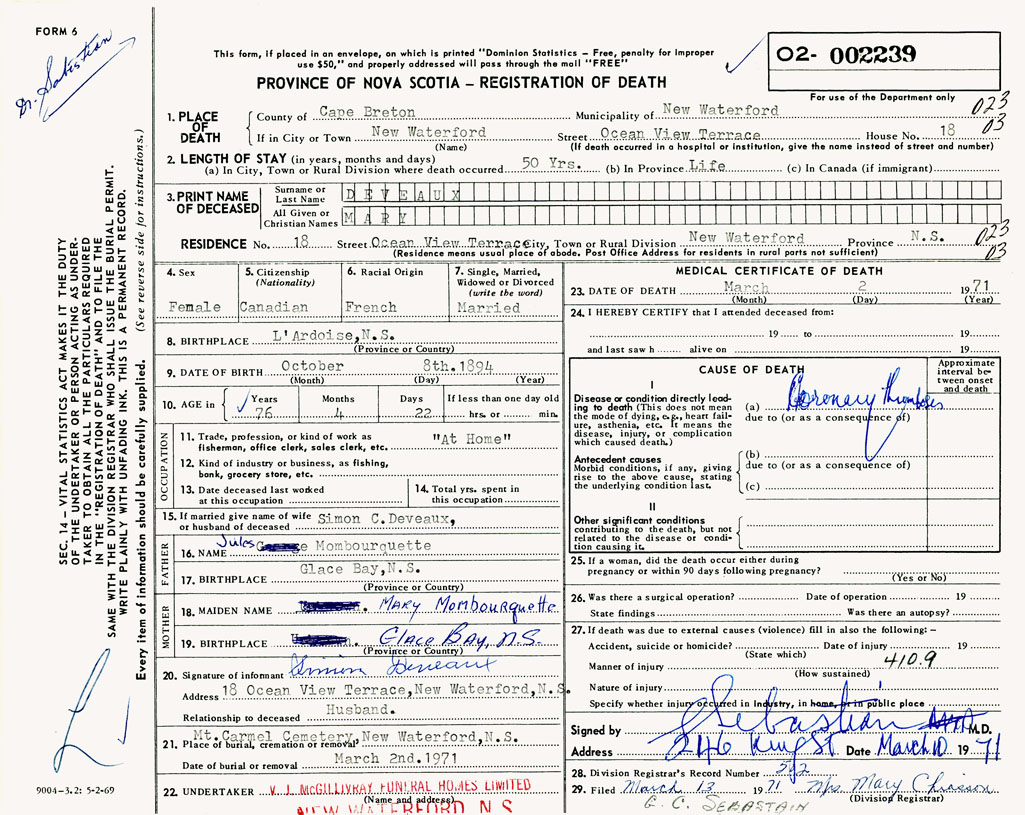 FORM 6
Dr. Sabastian
This form, if placed in an envelope, on which is printed "Dominion Statistics – Free, penalty for improper
use $50," and properly addressed will pass through the mail "FREE"
PROVINCE OF NOVA SCOTIA – REGISTRATION OF DEATH
O2- 002239
For use of the Department only
023
03
1. PLACE OF DEATH
County of Cape Breton Municipality of New Waterford
If in City or Town New Waterford Street Ocean View Terrace House No. 18
(Name) (If death occurred in a hospital or institution, give the name instead of street and number)
2. LENGTH OF STAY (in years, months and days)
(a) In City, Town or Rural Division where death occurred 50 Yrs. (b) In Province Life (c) In Canada (if immigrant)
3. PRINT NAME OF DECEASED
Surname or Last Name DEVEAUX
All Given or Christian Names MARY
RESIDENCE No. 18 Street Ocean View Terrace City, Town or Rural Division New Waterford Province N.S.
(Residence means usual place of abode. Post Office Address for residents in rural parts not sufficient)
023
03
SEC. 14 – VITAL STATISTICS ACT MAKES IT THE DUTY
OF THE UNDERTAKER OR PERSON ACTING AS UNDER-
TAKER TO OBTAIN ALL THE PARTICULARS REQUIRED
IN THE "REGISTRATION OF DEATH" AND TO FILE THE
SAME WITH THE DIVISION REGISTRAR WHO SHALL ISSUE THE BURIAL PERMIT.
WRITE PLAINLY WITH UNFADING INK. THIS IS A PERMANENT RECORD.
Every item of information should be carefully supplied. (See reverse side for instructions.)
4. Sex
Female
5. Citizenship
(Nationality)
Canadian
6. Racial Origin
French
7. Single, Married,
Widowed or Divorced
(write the word)
Married
8. BIRTHPLACE L'Ardoise,N.S.
(Province or Country)
9. DATE OF BIRTH October 8th.1894
(Month) (Day) (Year)
10. AGE in
Years Months Days If less than one day old
76 4 22 hrs. or min.
OCCUPATION
11. Trade, profession, or kind of work as
fisherman, office clerk, sales clerk, etc. "At Home"
12. Kind of industry or business, as fishing,
bank, grocery store, etc.
13. Date deceased last worked
at this occupation
14. Total yrs. spent in
this occupation
15. If married give name of wife
or husband of deceased Simon C.Deveaux,
FATHER
16. NAME Jules Mombourquette
17. BIRTHPLACE Glace Bay,N.S.
(Province or Country)
MOTHER
18. MAIDEN NAME MARY MOMBOURQUETTE
19. BIRTHPLACE GLACE BAY, N.S.
(Province or Country)
20. Signature of informant Simon Deveaux
Address 18 Ocean View Terrace,New Waterford,N.S.
Relationship to deceased Husband.
21. Place of burial, cremation or removal Mt.Carmel Cemetery,New Waterford,N.S.
Date of burial or removal March 2nd.1971
22. UNDERTAKER V. J. McGILLIVRAY FUNERAL HOMES LIMITED
(Name and address)
NEW WATERFORD N.S.
9004-3.2: 5-2-69
MEDICAL CERTIFICATE OF DEATH
23. DATE OF DEATH March 2 1971
(Month) (Day) (Year)
24. I HEREBY CERTIFY that I attended deceased from:
19 to 19
and last saw h alive on 19
CAUSE OF DEATH
Approximate
interval be-
tween onset
and death
I
Disease or condition directly lead-
ing to death (This does not mean
the mode of dying, e.g., heart fail-
ure, asthenia, etc. It means the
disease, injury, or complication
which caused death.)
(a) Coronary thrombosis
due to (or as a consequence of)
Antecedent causes
Morbid conditions, if any, giving
rise to the above cause, stating
the underlying condition last.
(b)
due to (or as a consequence of)
(c)
II
Other significant conditions
contributing to the death, but not
related to the disease or condi-
tion causing it.
25. If a woman, did the death occur either during
pregnancy or within 90 days following pregnancy?
(Yes or No)
26. Was there a surgical operation? Date of operation 19
State findings Was there an autopsy?
27. If death was due to external causes (violence) fill in also the following: –
Accident, suicide or homicide? Date of injury 19
(State which)
Manner of injury 410.9
(How sustained)
Nature of injury
Specify whether injury occurred in industry, in home, or in public place
Signed by Sebastian M.D.
Address 246 King St Date March 10 1971
28. Division Registrar's Record Number 592
29. Filed March 13 1971 Mrs. Mary Chiasson
(Division Registrar)
G. C. SEBASTAIN